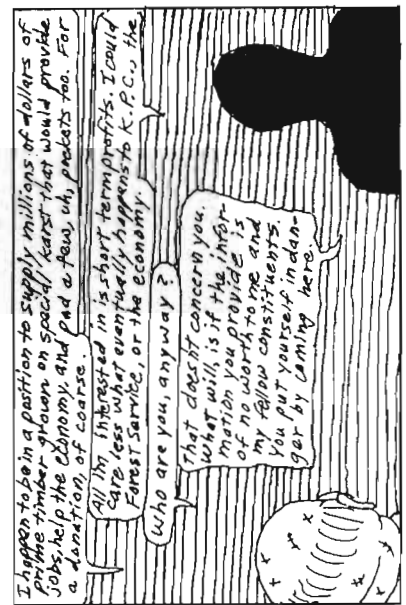 I happen to be in a position to supply millions of dollars of
prime timber grown on special karst that would provide
jobs, help the economy, and pad a few, uh, pockets too. For
a donation, of coarse.
All I'm interested in is short term profits. I could
care less what eventually happens to K.P.C., the
Forest Service, or the economy.
Who are you, anyway?
That doesn't concern you.
What will, is if the infor-
mation you provide is
of no worth, to me and
my fellow constituents.
You put yourself in dan-
ger by coming here.